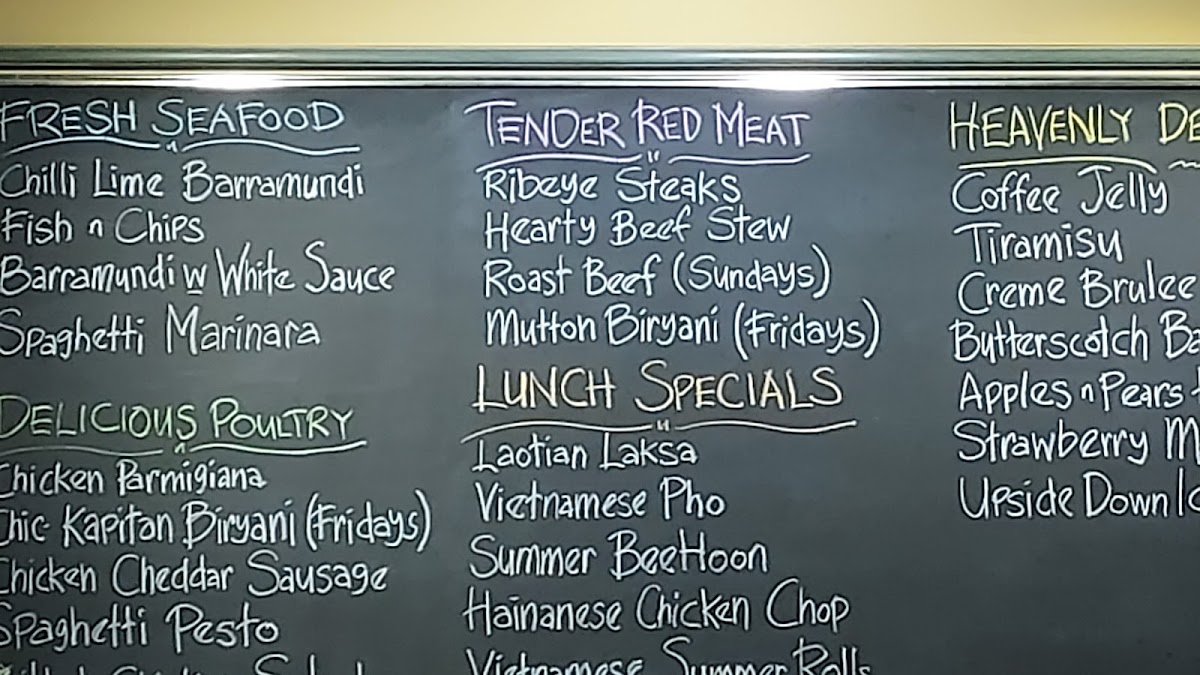 FRESH SEAFOOD
Chilli Lime Barramundi
Fish n Chips
Barramundi w White Sauce
Spaghetti Marinara
DELICIOUS POULTRY
Chicken Parmigiana
Chic Kapitan Biryani (Fridays)
Chicken Cheddar Sausage
Spaghetti Pesto
TENDER RED MEAT
Ribeye Steaks
Hearty Beef Stew
Roast Beef (Sundays)
Mutton Biryani (Fridays)
LUNCH SPECIALS
Laotian Laksa
Vietnamese Pho
Summer BeeHoon
Hainanese Chicken Chop
Vietnamese Summer Rolls
HEAVENLY DE
Coffee Jelly
Tiramisu
Creme Brulee
Butterscotch Ba
Apples n Pears
Strawberry M
Upside Down